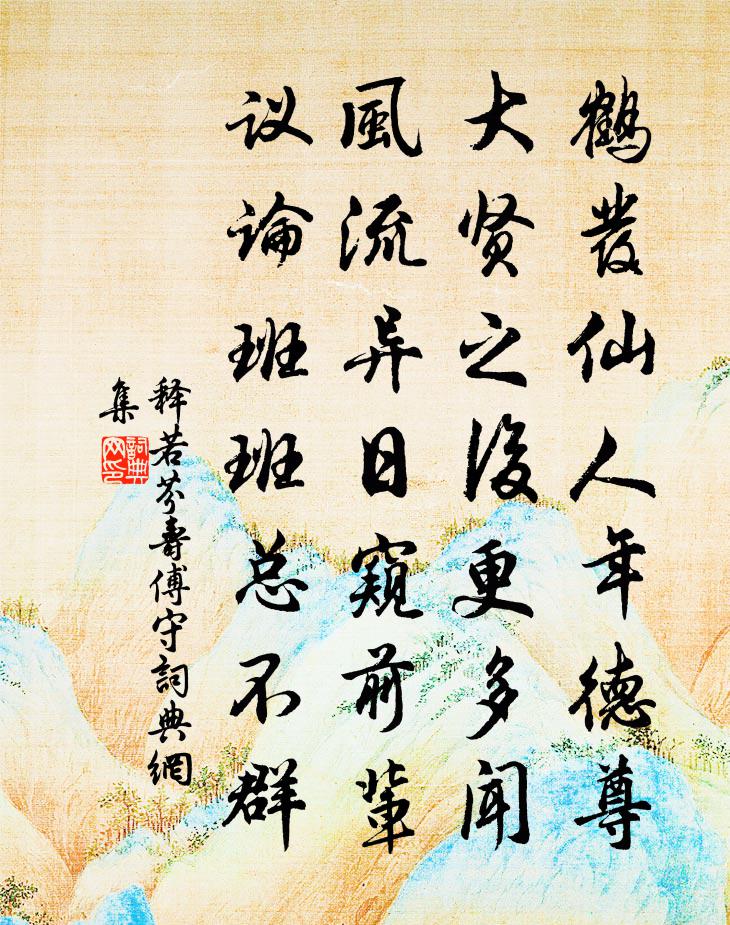 鶴發仙人年德尊
大贤之後更多聞
風流异日窺前輩
议論班班总不群
释若芬壽傅守詞典網
集
詞典網印